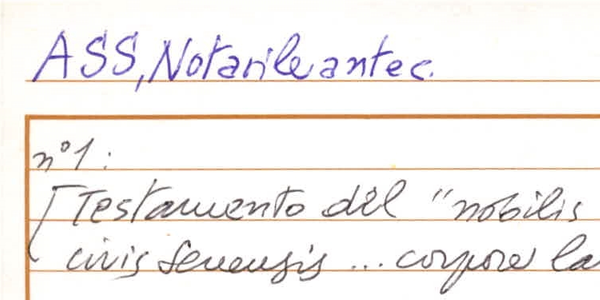 ASS, Notarile antec.
n° 1:
[Testamento del "nobilis
civis senensis ... corpore la